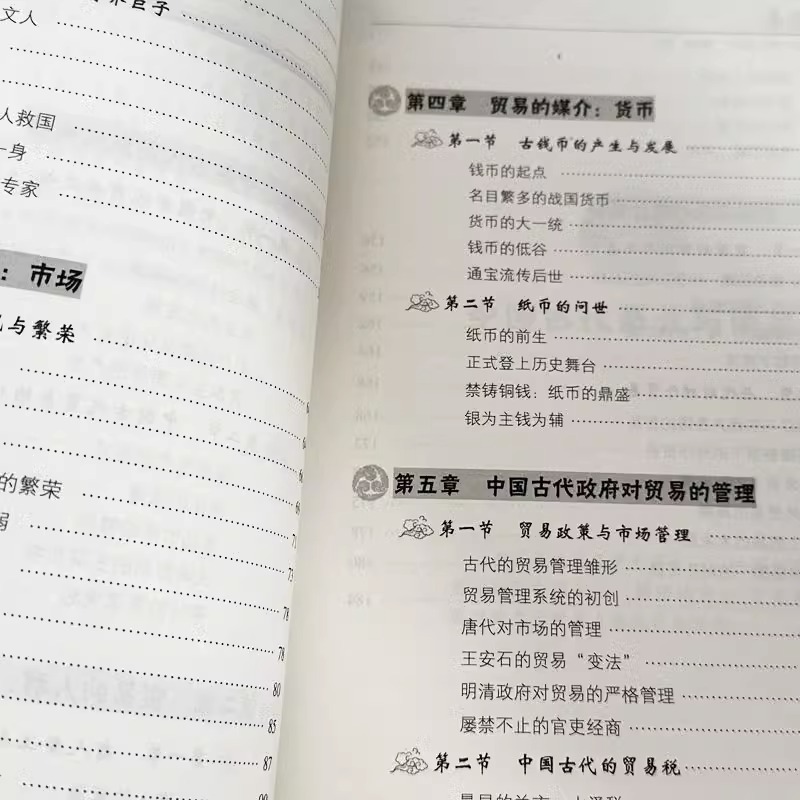 文人
人救国
一身
专家
：市场
与繁荣
64
66
69
71
73
的繁荣
78
78
80
85
87
第四章 贸易的媒介：货币
第一节 古钱币的产生与发展
钱币的起点
名目繁多的战国货币
货币的大一统
钱币的低谷
通宝流传后世
第二节 纸币的问世
纸币的前生
正式登上历史舞台
禁铸铜钱：纸币的鼎盛
银为主钱为辅
第五章 中国古代政府对贸易的管理
第一节 贸易政策与市场管理
古代的贸易管理雏形
贸易管理系统的初创
唐代对市场的管理
王安石的贸易“变法”
明清政府对贸易的严格管理
屡禁不止的官吏经商
第二节 中国古代的贸易税